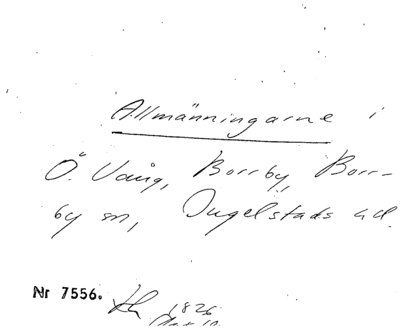 Allmänningarne i
Ö. Vång, Borrby, Borr-
by sn, Ingelstads hd.
Nr 7556.
1826